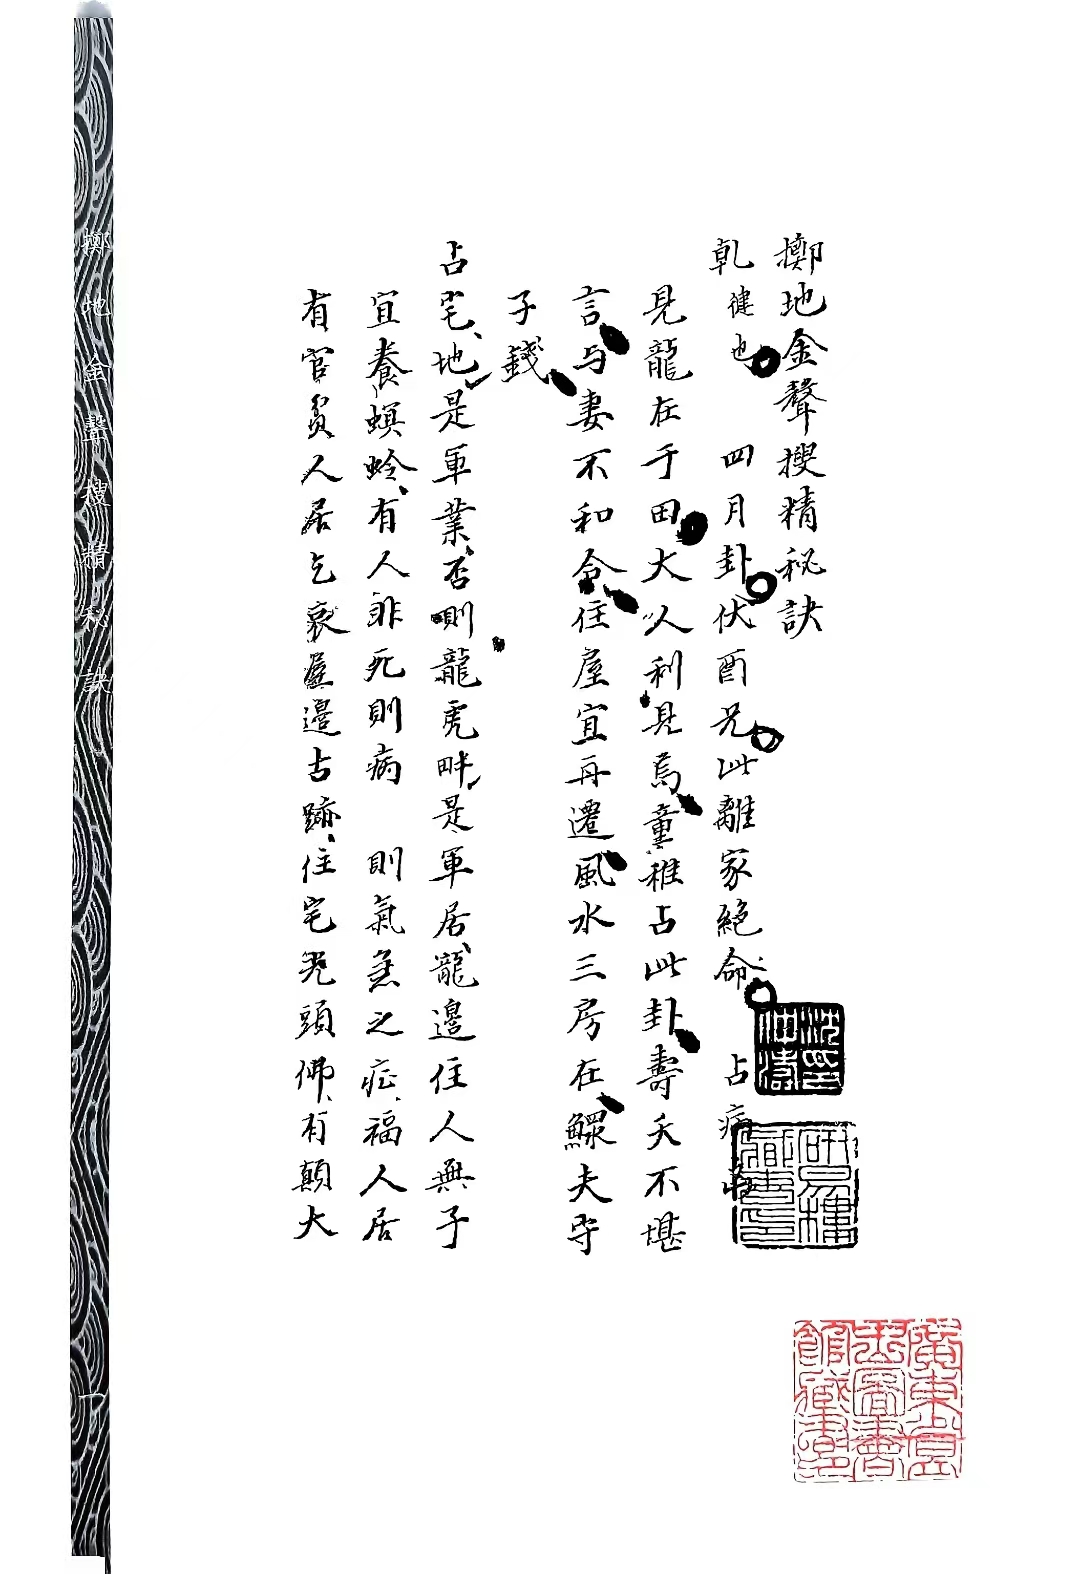 擲地金聲搜精秘訣
乾健也 四月卦伏酉兄此離家絕命 占病
見龍在于田大人利見焉童稚占此卦壽夭不堪
言与妻不和合住屋宜再遷風水三房在鰥夫守
子錢
占宅地是軍業否則龍虎畔是軍居龍邊住人無子
宜養螟蛉有人非死則病 則氣急之症福人居
有官貧人居乞衰屋邊古跡住宅光頭佛有顛大
擲地金聲搜精秘訣
沈仲濤印
研易樓藏書印
廣東省立圖書館藏書